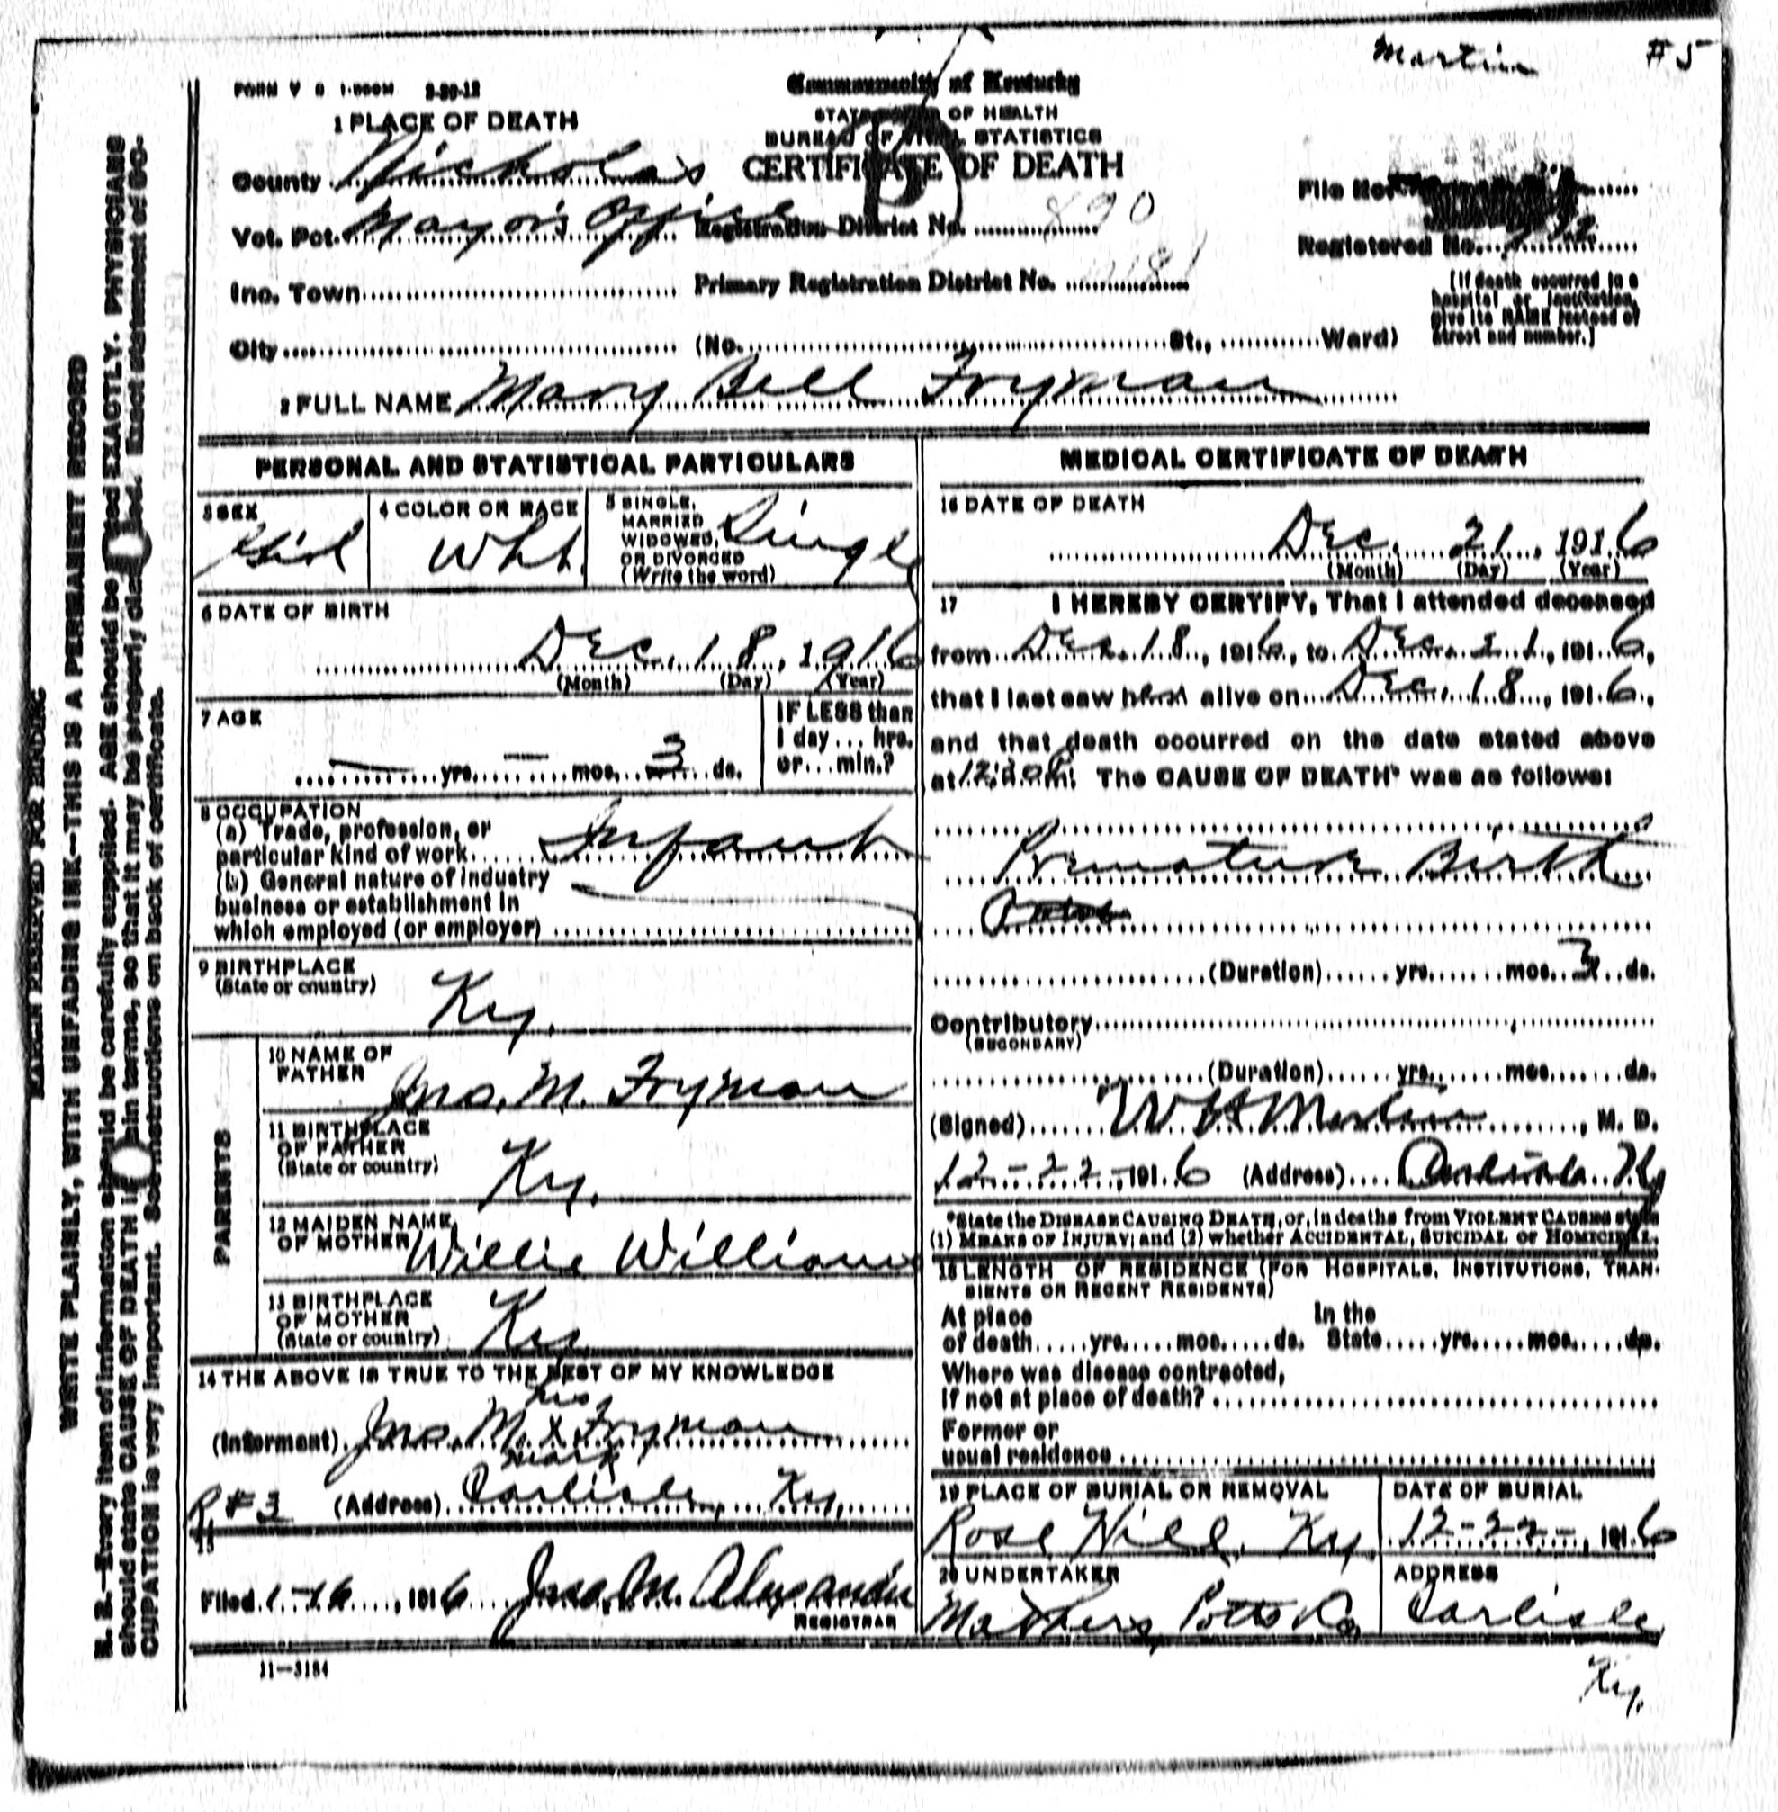 Martin #5
FORM V S 1-500M 9-30-12
Commonwealth of Kentucky
STATE BOARD OF HEALTH
BUREAU OF VITAL STATISTICS
CERTIFICATE OF DEATH
1 PLACE OF DEATH
County Nicholas
Vot. Pct. Mayor's Office
Inc. Town
City (No. St., Ward)
Registration District No. 890
Primary Registration District No.
File No.
Registered No.
(If death occurred in a
hospital or institution,
give its NAME instead of
street and number.)
2 FULL NAME Mary Bell Fryman
PERSONAL AND STATISTICAL PARTICULARS
3 SEX
Girl
4 COLOR OR RACE
Wht.
5 SINGLE,
MARRIED
WIDOWED,
OR DIVORCED
(Write the word)
Single
6 DATE OF BIRTH
Dec. 18, 1916
(Month) (Day) (Year)
7 AGE
— yrs. — mos. 3 ds.
IF LESS than
1 day ... hrs.
or ... min.?
8 OCCUPATION
(a) Trade, profession, or
particular kind of work Infant
(b) General nature of industry
business or establishment in
which employed (or employer)
9 BIRTHPLACE
(State or country)
Ky.
PARENTS
10 NAME OF
FATHER
Jno. M. Fryman
11 BIRTHPLACE
OF FATHER
(State or country)
Ky.
12 MAIDEN NAME
OF MOTHER
Willie Williams
13 BIRTHPLACE
OF MOTHER
(State or country)
Ky.
14 THE ABOVE IS TRUE TO THE BEST OF MY KNOWLEDGE
his
(Informant) Jno. M. X Fryman
mark
R #3 (Address) Carlisle, Ky.
15
Filed 1-16, 1916 Jno. M. Alexander
REGISTRAR
11—3184
MEDICAL CERTIFICATE OF DEATH
16 DATE OF DEATH
Dec. 21, 1916
(Month) (Day) (Year)
17 I HEREBY CERTIFY, That I attended deceased
from Dec. 18, 1916, to Dec. 21, 1916,
that I last saw alive on Dec. 18, 1916,
and that death occurred on the date stated above
at m. The CAUSE OF DEATH* was as follows:
Premature Birth
(Duration) yrs. mos. 3 ds.
Contributory
(SECONDARY)
(Duration) yrs. mos. ds.
(Signed) W H Martin, M. D.
12-22-1916 (Address) Carlisle Ky
*State the DISEASE CAUSING DEATH, or, in deaths from VIOLENT CAUSES state
(1) MEANS OF INJURY; and (2) whether ACCIDENTAL, SUICIDAL or HOMICIDAL.
18 LENGTH OF RESIDENCE (FOR HOSPITALS, INSTITUTIONS, TRAN-
SIENTS OR RECENT RESIDENTS)
At place In the
of death yrs. mos. ds. State yrs. mos. ds.
Where was disease contracted,
if not at place of death?
Former or
usual residence
19 PLACE OF BURIAL OR REMOVAL
Rose Hill, Ky.
DATE OF BURIAL
12-22-, 1916
20 UNDERTAKER
Mathers, Potts Co
ADDRESS
Carlisle
Ky.
MARGIN RESERVED FOR BINDING
WRITE PLAINLY, WITH UNFADING INK—THIS IS A PERMANENT RECORD
N. B.—Every item of information should be carefully supplied. AGE should be stated EXACTLY. PHYSICIANS
should state CAUSE OF DEATH in plain terms, so that it may be properly classified. Exact statement of OC-
CUPATION is very important. See instructions on back of certificate.